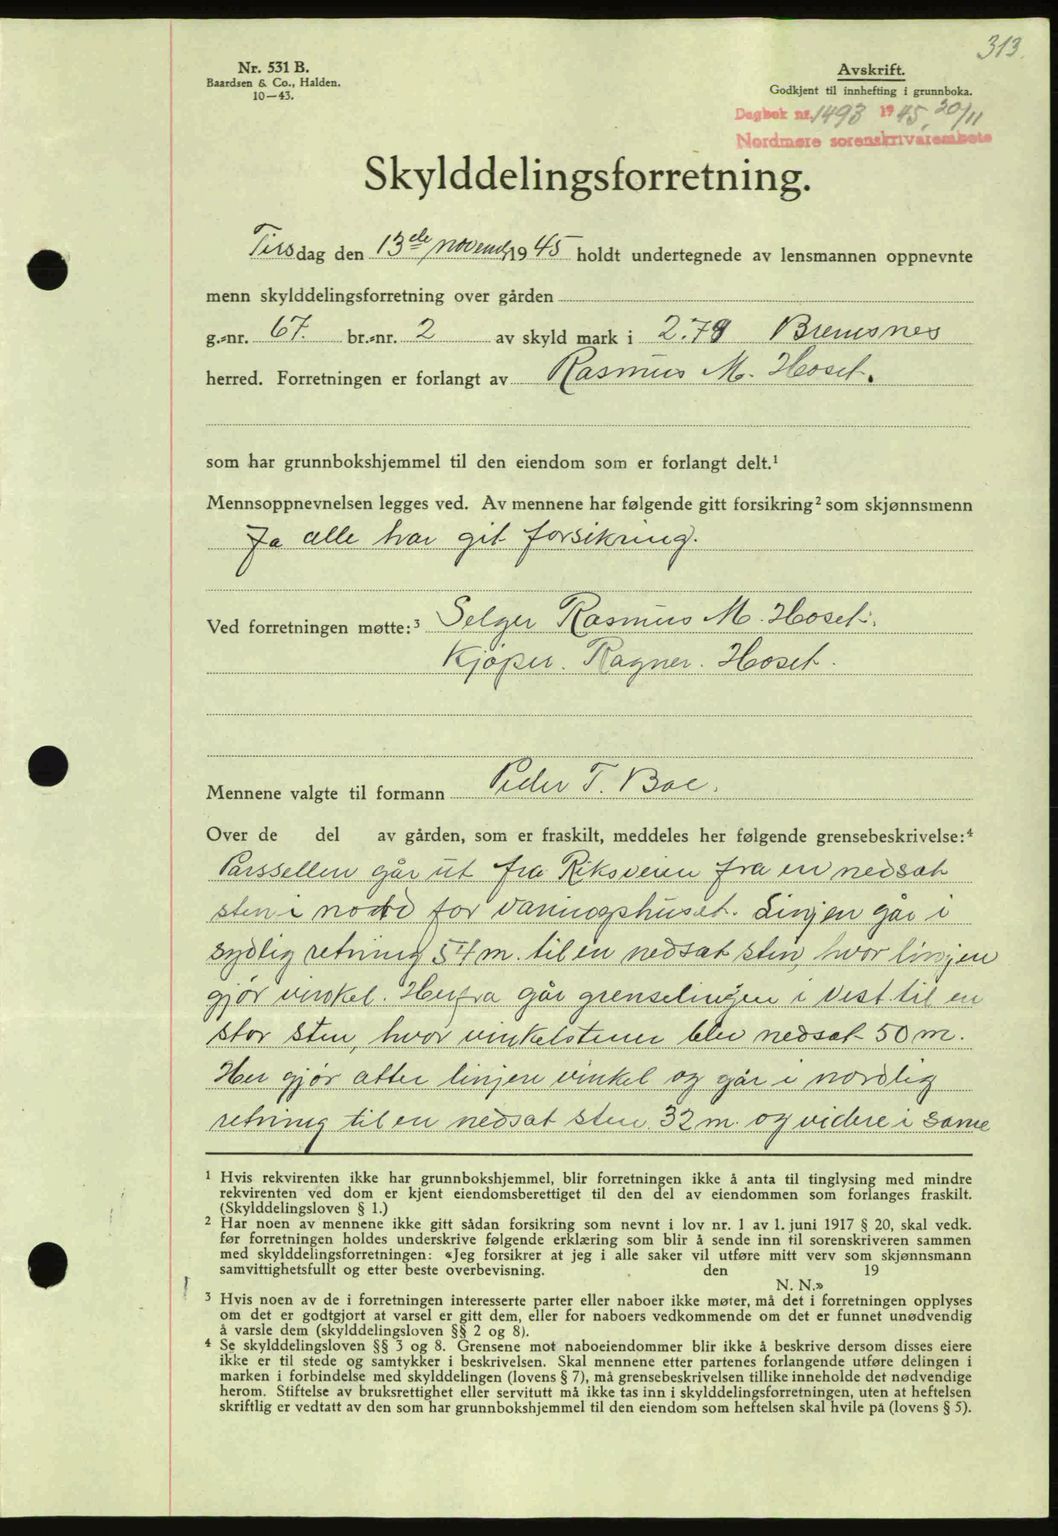 313.
Nr. 531 B.
Baardsen & Co., Halden.
10—43.
Avskrift.
Godkjent til innhefting i grunnboka.
Dagbok nr. 1493 1945, 20/11
Nordmøre sorenskrivarembete
Skylddelingsforretning.
Tirsdag den 13de novemb 1945 holdt undertegnede av lensmannen oppnevnte
menn skylddelingsforretning over gården
g.-nr. 67. br.-nr. 2 av skyld mark i 2.78 Bremsnes
herred. Forretningen er forlangt av Rasmus M. Hoset.
som har grunnbokshjemmel til den eiendom som er forlangt delt.¹
Mennsoppnevnelsen legges ved. Av mennene har følgende gitt forsikring² som skjønnsmenn
Ja alle har git forsikring.
Ved forretningen møtte:³ Selger Rasmus M. Hoset.
Kjøper. Ragner. Hoset.
Mennene valgte til formann Peder T. Boe.
Over de del av gården, som er fraskilt, meddeles her følgende grensebeskrivelse:⁴
Parssellen går ut fra Riksveien fra en nedsat
sten i nord for vaningshuset. Linjen går i
sydlig retning 54 m. til en nedsat sten, hvor linjen
gjør vinkel. Herfra går grenselinjen i Vest til en
stor sten, hvor vinkelstenen blev nedsat 50 m.
Her gjør atter linjen vinkel og går i nordlig
retning til en nedsat sten 32 m. og videre i same
¹ Hvis rekvirenten ikke har grunnbokshjemmel, blir forretningen ikke å anta til tinglysing med mindre
rekvirenten ved dom er kjent eiendomsberettiget til den del av eiendommen som forlanges fraskilt.
(Skylddelingsloven § 1.)
² Har noen av mennene ikke gitt sådan forsikring som nevnt i lov nr. 1 av 1. juni 1917 § 20, skal vedk.
før forretningen holdes underskrive følgende erklæring som blir å sende inn til sorenskriveren sammen
med skylddelingsforretningen: «Jeg forsikrer at jeg i alle saker vil utføre mitt verv som skjønnsmann
samvittighetsfullt og etter beste overbevisning. den 19
N. N.»
³ Hvis noen av de i forretningen interesserte parter eller naboer ikke møter, må det i forretningen opplyses
om det er godtgjort at varsel er gitt dem, eller for naboers vedkommende om det er funnet unødvendig
å varsle dem (skylddelingsloven §§ 2 og 8).
⁴ Se skylddelingsloven §§ 3 og 8. Grensene mot naboeiendommer blir ikke å beskrive dersom disses eiere
ikke er til stede og samtykker i beskrivelsen. Skal mennene etter partenes forlangende utføre delingen i
marken i forbindelse med skylddelingen (lovens § 7), må grensebeskrivelsen tillike inneholde det nødvendige
herom. Stiftelse av bruksrettighet eller servitutt må ikke tas inn i skylddelingsforretningen, uten at heftelsen
skriftlig er vedtatt av den som har grunnbokshjemmel til den eiendom som heftelsen skal hvile på (lovens § 5).